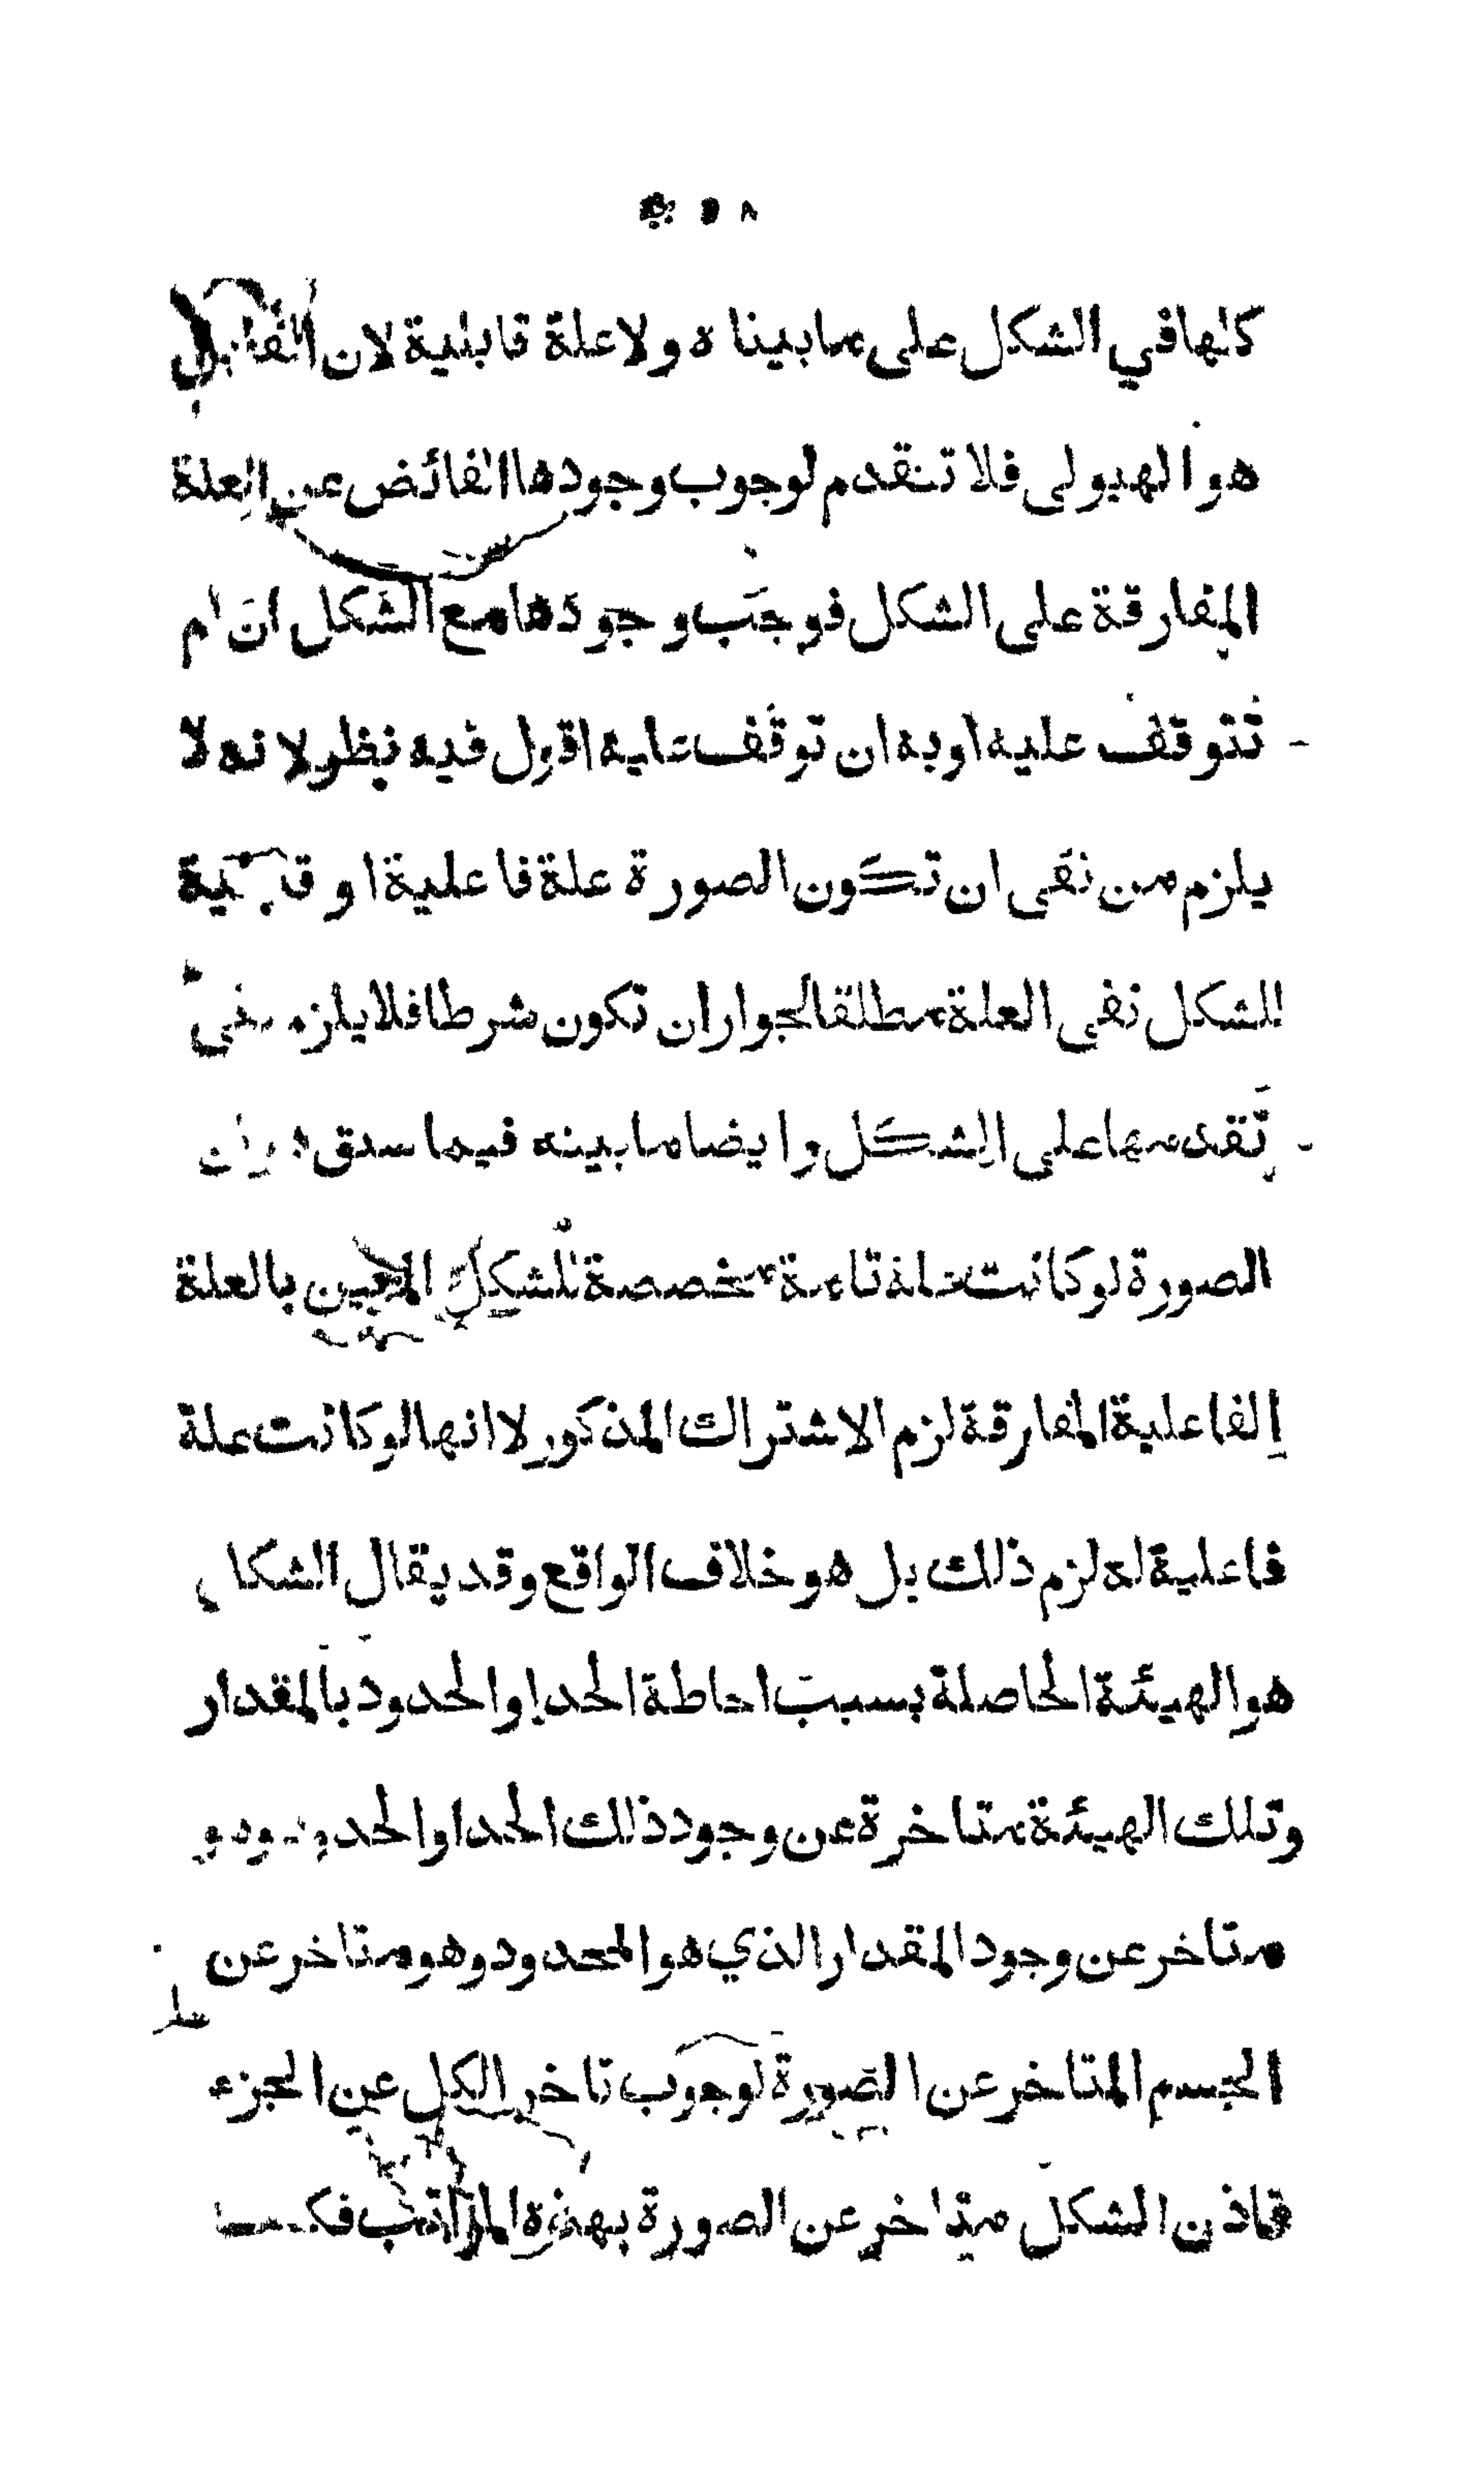 ٥٨
كلها في الشكل على ما بيناه ولا علة قابلية لان القابل
هو الهيولى فلا تتقدم لوجوب وجودها الفائض عن العلة
المفارقة على الشكل فوجب وجودها مع الشكل ان لم
تتوقف عليه او به ان توقف عليه اقول فيه نظر لانه لا
يلزم من نفى ان تكون الصورة علة فاعلية او قابلية
للشكل نفى العلة مطلقا لجواز ان تكون شرطا فلا يلزم نفى
تقدمها على الشكل وايضا ما بينه فيما سبق هو ان
الصورة لو كانت علة تامة مخصصة للشكل المعين بالعلة
الفاعلية المفارقة لزم الاشتراك المذكور لا انها لو كانت علة
فاعلية له لزم ذلك بل هو خلاف الواقع وقد يقال الشكل
هو الهيئة الحاصلة بسبب احاطة الحد او الحدود بالمقدار
وتلك الهيئة متاخرة عن وجود ذلك الحد او الحدود وهو
متاخر عن وجود المقدار الذي هو المحدود وهو متاخر عن
الجسم المتاخر عن الصورة لوجوب تاخر الكل عن الجزء
فاذن الشكل متاخر عن الصورة بهذه المراتب فكيف